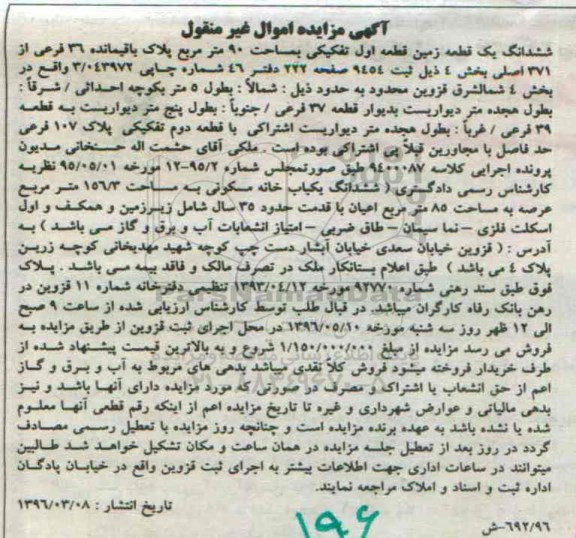 آگهی مزایده اموال غیر منقول
ششدانگ یک قطعه زمین قطعه اول تفکیکی بمساحت ۹۰ متر مربع پلاک باقیمانده ۳۶ فرعی از
۳۷۱ اصلی بخش ۴ ذیل ثبت ۹۴۵۴ صفحه ۲۲۲ دفتر ۴۶ شماره چاپی ۳/۰۴۳۹۷۲ واقع در
بخش ۴ شمالشرق قزوین محدود به حدود ذیل : شمالاً : بطول ۵ متر بکوچه احداثی / شرقاً :
بطول هجده متر دیواریست بدیوار قطعه ۳۷ فرعی / جنوباً : بطول پنج متر دیواریست به قطعه
۳۹ فرعی / غرباً : بطول هجده متر دیواریست اشتراکی با قطعه دوم تفکیکی پلاک ۱۰۷ فرعی
حد فاصل با مجاورین قبلاً پی اشتراکی بوده است . ملکی آقای حشمت اله حسنخانی مدیون
پرونده اجرایی کلاسه ۹۴۰۰۰۸۷ طبق صورتمجلس شماره ۹۵/۲-۱۲ مورخه ۹۵/۰۵/۰۱ نظریه
کارشناس رسمی دادگستری ( ششدانگ یکباب خانه مسکونی به مساحت ۱۵۶/۳ متر مربع
عرصه به مساحت ۸۵ متر مربع اعیان با قدمت حدود ۳۵ سال شامل زیرزمین و همکف و اول
اسکلت فلزی – نما سیمان – طاق ضربی – امتیاز انشعابات آب و برق و گاز می باشد ) به
آدرس : ( قزوین خیابان سعدی خیابان آبشار دست چپ کوچه شهید مهدیخانی کوچه زرین
پلاک ۴ می باشد ) طبق اعلام بستانکار ملک در تصرف مالک و فاقد بیمه می باشد . پلاک
فوق طبق سند رهنی شماره ۹۲۷۷۰ مورخه ۱۳۹۳/۰۴/۱۲ تنظیمی دفترخانه شماره ۱۱ قزوین در
رهن بانک رفاه کارگران میباشد. در قبال طلب توسط کارشناس ارزیابی شده از ساعت ۹ صبح
الی ۱۲ ظهر روز سه شنبه مورخه ۱۳۹۶/۰۵/۱۰ در محل اجرای ثبت قزوین از طریق مزایده به
فروش می رسد مزایده از مبلغ ۱/۱۵۰/۰۰۰/۰۰۰ شروع و به بالاترین قیمت پیشنهاد شده از
طرف خریدار فروخته میشود فروش کلاً نقدی میباشد بدهی های مربوط به آب و برق و گاز
اعم از حق انشعاب یا اشتراک و مصرف در صورتی که مورد مزایده دارای آنها باشد و نیز
بدهی مالیاتی و عوارض شهرداری و غیره تا تاریخ مزایده اعم از اینکه رقم قطعی آنها معلوم
شده یا نشده باشد به عهده برنده مزایده است و چنانچه روز مزایده با تعطیل رسمی مصادف
گردد در روز بعد از تعطیل جلسه مزایده در همان ساعت و مکان تشکیل خواهد شد طالبین
میتوانند در ساعات اداری جهت اطلاعات بیشتر به اجرای ثبت قزوین واقع در خیابان پادگان
اداره ثبت و اسناد و املاک مراجعه نمایند.
تاریخ انتشار : ۱۳۹۶/۰۳/۰۸
۶۹۲/۹۶-ش
۱۹۶
ParsNamadData